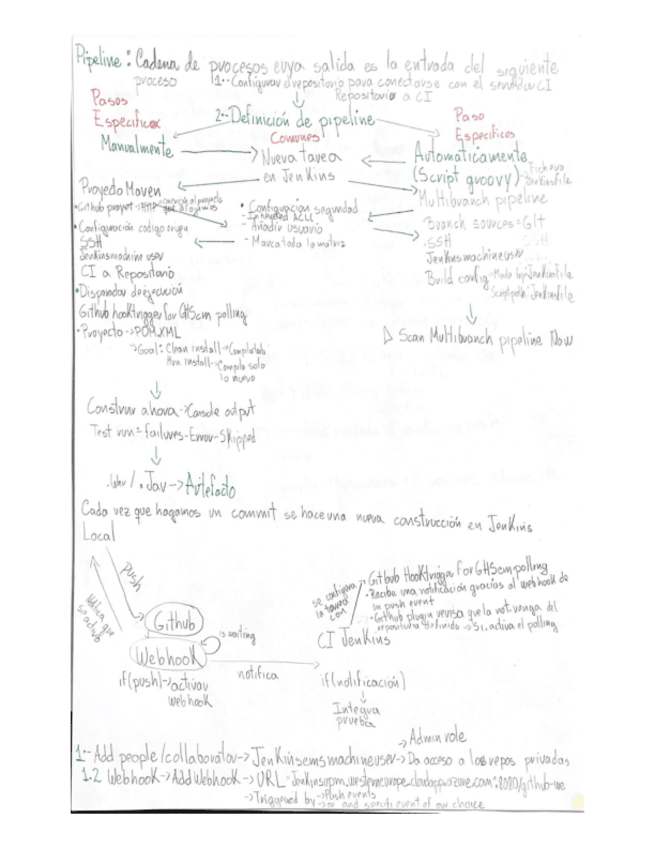 Pipeline: Cadena de procesos cuya salida es la entrada del siguiente
proceso
1.- Configurar el repositorio para conectarse con el servidor CI
Repositorio a CI
Pasos
Especificos
Manualmente
2.- Definición de pipeline
Comunes
Nueva tarea
en Jenkins
Paso
Especificos
Automaticamente
(Script groovy)
Jenkinsfile
Proyecto Maven
• Github proyect
• Configuración codigo origen
SSH
Jenkinsmachine user
CI a Repositorio
• Disparador de ejecución
Github hooktrigger for GitScm polling
• Proyecto → POM.XML
→ Goal: Clean install → Compila todo
Mvn install → Compila solo
lo nuevo
• Configuración seguridad
- Añadir usuario
- Marca toda la matriz
Multibranch pipeline
Branch sources = Git
SSH
Jenkinsmachineuser
Build config → Mode by Jenkinsfile
Scriptpath: Jenkinsfile
▷ Scan Multibranch pipeline Now
Construir ahora → Console output
Test run = failures - Error - Skipped
.war / .Jar → Artefacto
Cada vez que hagamos un commit se hace una nueva construcción en Jenkins
Local
push
Github
Webhook
is waiting
if(push) → activar
webhook
notifica
se configura
la tarea
con
Github Hooktrigger for GitScm polling
• Recibe una notificación gracias al webhook de
un push event
• Github plugin revisa que la not venga del
repositorio definido → Si, activa el polling
CI Jenkins
if(notificación)
Integra
prueba
→ Admin role
1.- Add people/collaborator → Jenkinsemsmachineuser → Da acceso a los repos privados
1.2 Webhook → Add Webhook → URL
→ Triggered by → Push events